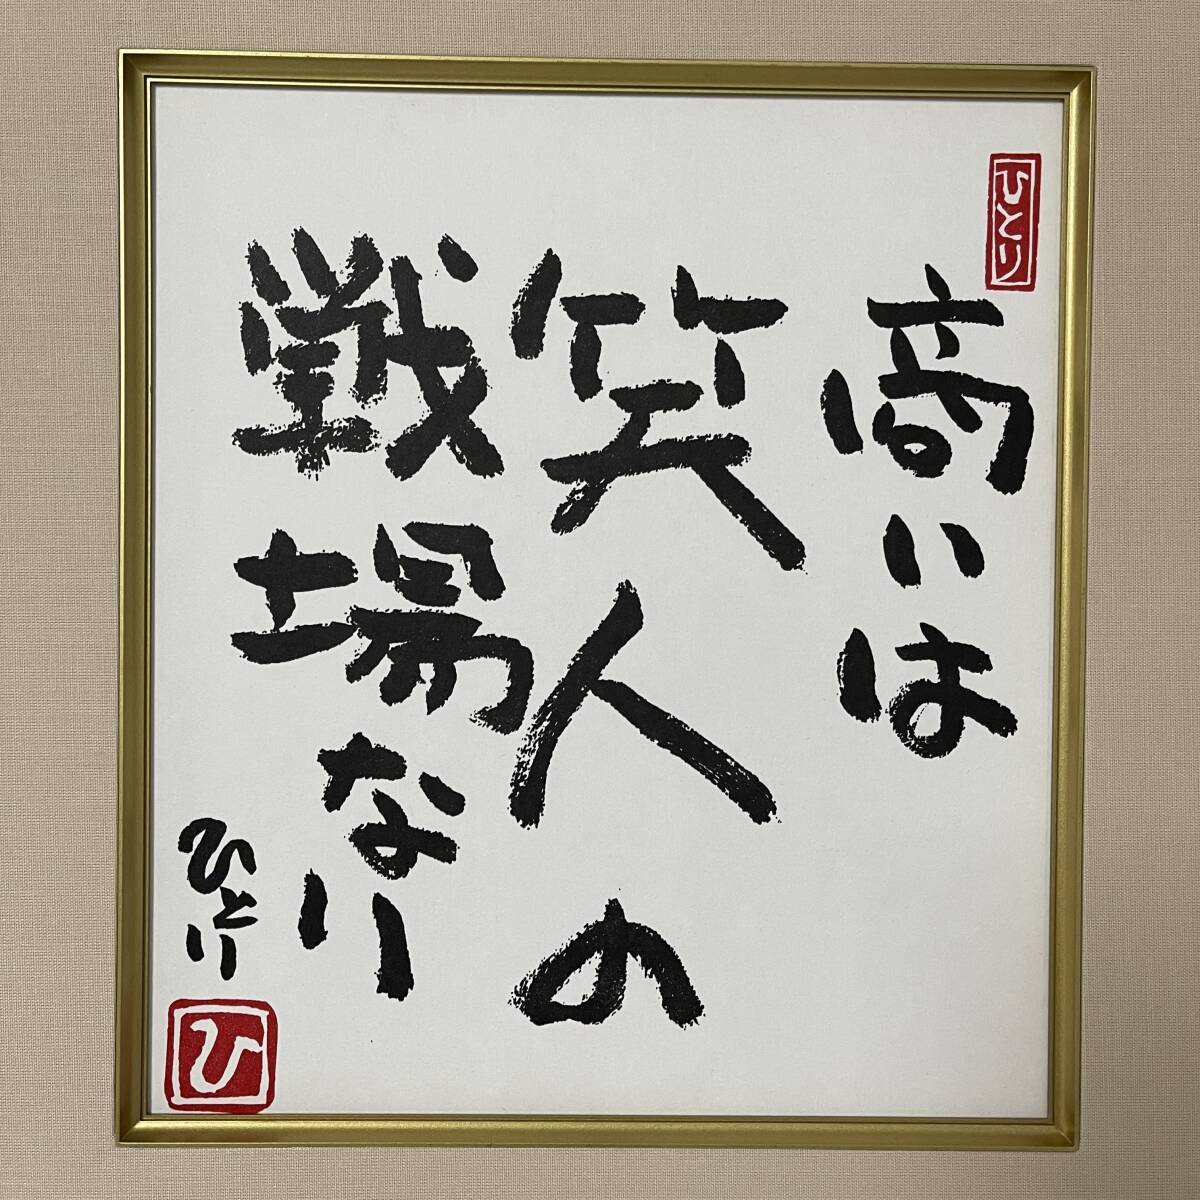 ひとり
商いは
笑人の
戦場なり
ひとり
ひ